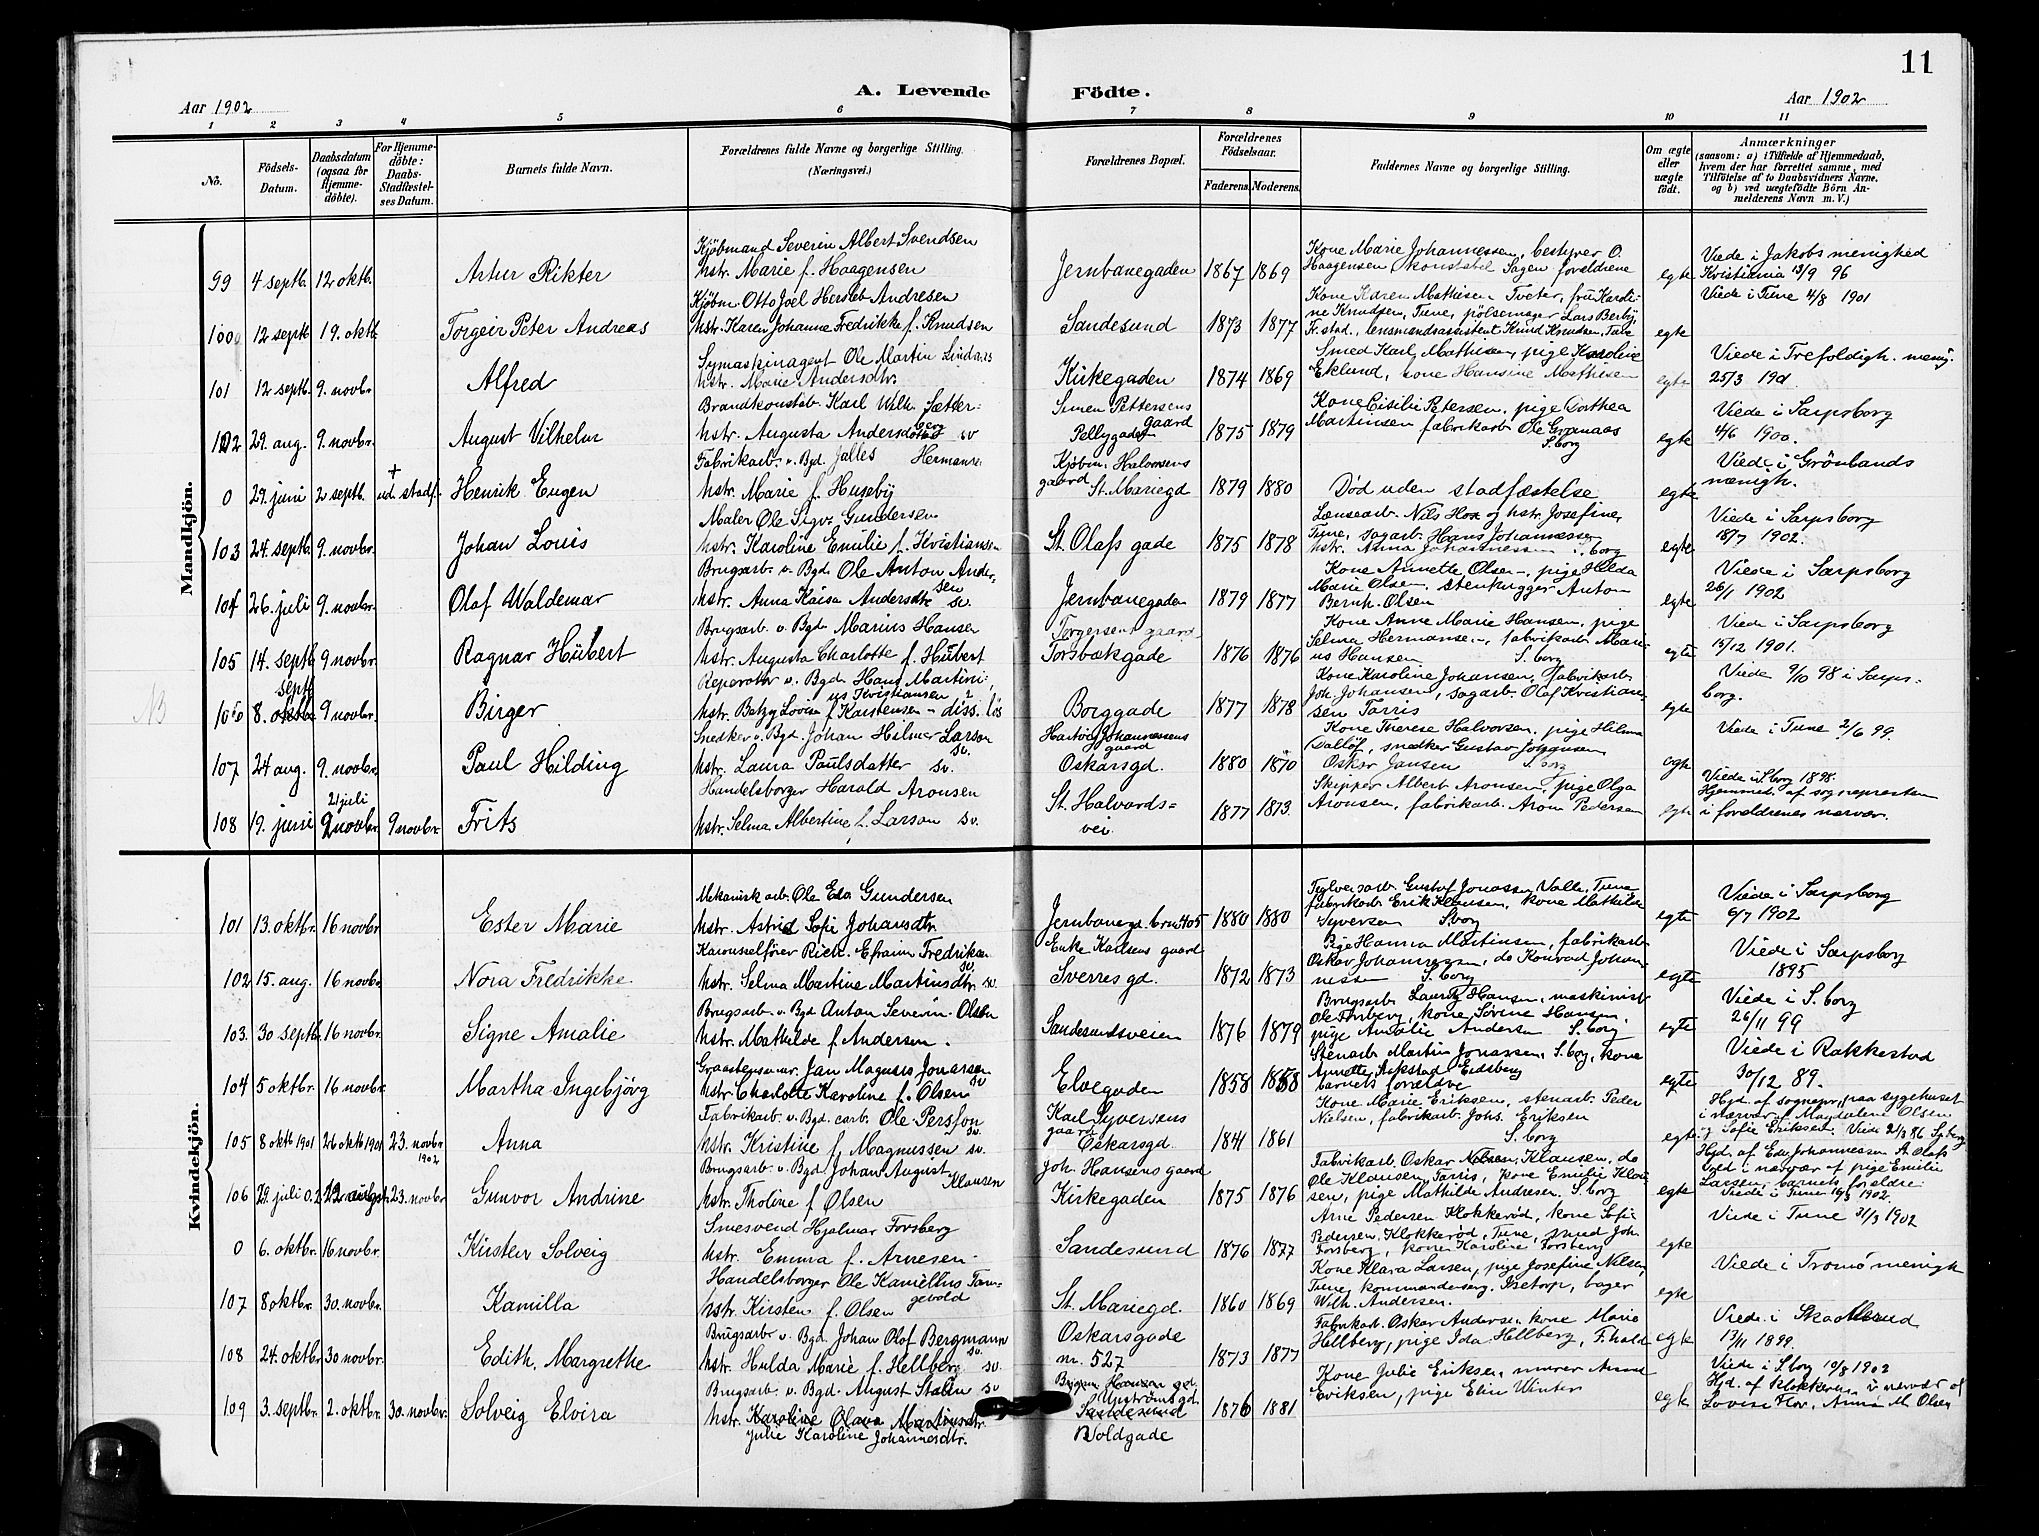 11
A. Levende Födte.
Aar 1902
Aar 1902
1 2 3 4 5 6 7 8 9 10 11
No.
Födsels-
Datum.
Daabsdatum
(ogsaa for
Hjemme-
döbte).
For Hjemme-
döbte:
Daabs-
Stadfæstel-
ses Datum.
Barnets fulde Navn.
Forældrenes fulde Navne og borgerlige Stilling.
(Næringsvei.)
Forældrenes Bopæl.
Forældrenes
Födselsaar.
Faderens. Moderens.
Faddernes Navne og borgerlige Stilling.
Om ægte
eller
uægte
födt.
Anmærkninger
(saasom: a) i Tilfælde af Hjemmedaab,
hvem der har forrettet samme, med
Tilföielse af to Daabsvidners Navne,
og b) ved uægtefödte Börn An-
melderens Navn m. V.)
Mandkjön.
Kjøbmand Severin Albert Svendsen
99 4 septb. 12 oktb. Artur Rikter hstr. Marie f. Haagensen Jernbanegaden 1867 1869
Kone Marie Johannessen, bestyrer O.
Haagensen konstabel Sagen foreldrene egte
Viede i Jakobs menighed
Kristiania 13/9 96
Kjøbm. Otto Joel Hersleb Andresen
100 12 septb 19. oktb. Torgeir Peter Andreas hstr. Karen Johanne Fredrikke f. Knudsen Sandesund 1873 1877
Kone Karen Mathisen Tveter, fru Kardi-
ne Knudsen, Tune, pølsemager Lars Berby
Fr.stad, lensmandsassistent Knud Knudsen, Tune egte
Viede i Tune 4/8 1901
Symaskinagent Ole Martin
101 12 septb. 9. novbr. Alfred hstr. Marie Andersdtr. Kirkegaden 1874 1869
Smed Karl Mathisen, pige Karoline
Eklund, kone Hansine Mathisen egte
Viede i Trefoldigh. menig.
25/3 1901
Brandkonstab. Karl Wilh. Sætter-
berg
102 29. aug. 9. novbr. August Vilhelm hstr. Augusta Andersdotter sv
Simen Pettersens
gaard
Pellygaden 1875 1879
Kone Cisilie Petersen, pige Dorthea
Martinsen fabrikarb. Ole Granaas
S.borg egte
Viede i Sarpsborg
4/6 1900.
Fabrikarb. v. Bgd. Jalles Hermansen
0 29. juni 2 septb. + ud. stadf. Henrik Eugen hstr. Marie f. Huseby
Kjøbm. Halvorsens
gaard St. Mariegd 1879 1880 Død uden stadfæstelse egte
Viede i Grönlands
menigh.
Maler Ole Sigv. Gundersen
103 24. septb. 9. novbr. Johan Louis hstr. Karoline Emilie f. Kristiansen St. Olafs gade 1875 1878
Lænsearb. Nils Hox og hstr. Josefine,
Tune, sagarb. Hans Johannessen
hstr. Anna Johannessen S. borg egte
Viede i Sarpsborg
18/7 1902.
Brugsarb. v. Bgd. Ole Anton Ander-
sen
104 26. juli 9. novbr. Olaf Waldemar hstr. Anna Kaisa Andersdtr sv. Jernbanegaden 1879 1877
Kone Annette Olsen, pige Hilda
Marie Olsen, stenhugger Anton
Bernh. Olsen egte
Viede i Sarpsborg
26/1 1902.
Brugsarb. v. Bgd. Marius Hansen
105 14. septb 9 novbr. Ragnar Hübert hstr. Augusta Charlotte f. Hübert
Torgersens gaard
Torsbækgade 1876 1876
Kone Anne Marie Hansen, pige
Selma Hermansen, fabrikarb. Mari-
us Hansen S. borg egte
Viede i Sarpsborg
15/12 1901.
NB
Reperatör v. Bgd. Hans Martini-
us Kristiansen
septb
106 8. oktbr 9 novbr. Birger hstr. Betzy Lovise f. Karstensen - diss. løs Borggade 1877 1878
Kone Karoline Johansen, fabrikarb.
Joh. Johansen, sagarb. Olaf Kristian-
sen Tarris egte
Viede 9/10 98 i Sarps-
borg.
Snedker v. Bgd. Johan Hilmer Larson
sv.
107 24 aug. 9. novbr. Paul Hilding hstr. Laura Paulsdatter sv.
Johannessens
gaard
Oskarsgd. 1880 1870
Kone Therese Halvorsen, pige Hilma
Dalløf, snedker Gustav Johansen
Oskar Jansen S. borg egte
Viede i Tune 2/6 99.
Handelsborger Harald Aronsen
21 juli
108 19. juni 9 novbr. 9 novbr. Frits hstr. Selma Albertine f. Larson sv.
St. Halvards-
vei. 1877 1873.
Skipper Albert Aronsen, pige Olga
Aronsen, fabrikarb. Aron Pedersen egte
Viede i S.borg 1898.
Hjemmed. af sognepresten
i foreldrenes nærvær.
Kvindekjön.
Mekanisk arb. Ole Edv. Gundersen
101 13. oktbr. 16 novbr Ester Marie hstr. Astrid Sofie Johansdtr. Jernbanegd. 1880 1880
Teglversarb. Gustaf Jonassen Valle, Tune
fabrikarb. Erik Klausen, kone Mathilde
Syversen S.borg egte
Viede i Sarpsborg
6/7 1902.
Karousselfører Rich. Efraim Fredriksen
sv.
102 15. aug. 16 novbr. Nora Fredrikke hstr. Selma Martine Martinsdtr. sv.
Enke Karlsens gaard
Sverres gd. 1872 1873
Pige Hanna Martinsen, fabrikarb.
Oskar Johannessen, do Konrad Johan-
nessen S. borg egte
Viede i Sarpsborg
1895
Brugsarb. v. Bgd Anton Severin Olsen
103. 30 septb. 16 novbr. Signe Amalie hstr. Mathilde f. Andersen. Sandesundsveien 1876 1879
Brugsarb. Lauritz Hansen, maskinist
Ole Forsberg, kone Sørine Hansen,
pige Amalie Andersen S. borg egte
Viede i S. borg
26/11 99
Jan Magnus Jonassen
sv
104 5 oktbr. 16 novbr. Martha Ingebjörg hstr. Charlotte Karoline f. Olsen Elvegaden 1858 1858
Stenarb Martin Jonassen, S. borg, kone
Annette Eidsberg
barnets forældre egte
Viede i Rakkestad
30/12 89.
Fabrikarb. v. Bgd. carb. Ole Persson
sv.
105 8 oktb 1901 26 oktb 1901 23. novbr 1902 Anna hstr. Kristine f. Magnussen sv.
Karl Syversens
gaard
Oskarsgd. 1841 1861
Kone Marie Eriksen, stenarb. Peder
Nielsen, fabrikarb. Johs. Eriksen
S. borg egte
Hjd. af sognepr. paa sygehuset
i nærvær af Magdalene Olsen
og Sofie Eriksen. Viede 21/3 86 S.borg
Brugsarb. v. Bgd Johan August
Klausen
106 29 juli 02 22 august 23. novbr. Gunvor Andrine hstr. Tholine f Olsen
Joh. Hansens gaard
Kirkegaden 1875 1876
Fabrikarb. Oskar Klausen, do
Ole Klausen, Tarris, kone Emilie Klau-
sen, pige Mathilde Andresen. S. borg egte
Hjd. af Edv. Johannessen
i nærvær af pige Emilie
Larsen, barnets foreldre
Viede i Tune 1902.
Smesvend Hjalmar Forsberg
0 6. oktbr. 16 novbr. Kirsten Solveig hstr. Emma f. Arnesen Sandesund 1876 1877
Arne Pedersen Klokkerød, kone Sofie
Pedersen, Klokkerød, Tune, smed Joh.
Forsberg, kone Karoline Forsberg egte
Viede i Tune 31/3 1902
Handelsborger Ole Kamellius Tan-
gevold
107 8 oktbr. 30. novbr. Kamilla hstr. Kirsten f. Olsen St. Mariegd. 1860 1869
Kone Klara Larsen, pige Josefine Nilsen,
Tune, kommandersarg. Isetorp, bager
Wilh. Andersen. egte
Viede i Tromö menigh
Brugsarbr v. Bgd. Johan Olof Bergmann
sv.
108 24. oktbr. 30 novbr. Edith Margrethe hstr. Hulda Marie f. Hellberg sv.
Oskarsgade
nr. 527 1873 1877
Fabrikarb. Oskar Andersen kone Marie
Hellberg, pige Ida Hellberg, F. hald egte
Viede i
13/11 1899.
Brugsarb. v. Bgd. August Stalen sv
109 3. septbr. 2. oktbr. 30. novbr. Solveig Elvira hstr. Karoline Olava Martinsdtr.
Julie Karoline Johannesdtr.
Hansen gd.
Sandesund
Voldgade 1876 1881
Kone Julie Eriksen, murer
Eriksen, pige Elin Winter egte
Viede i S.borg 10/8 1902
Hjd. af i nærvær af
Lovise Flor, Anna M. Olsen